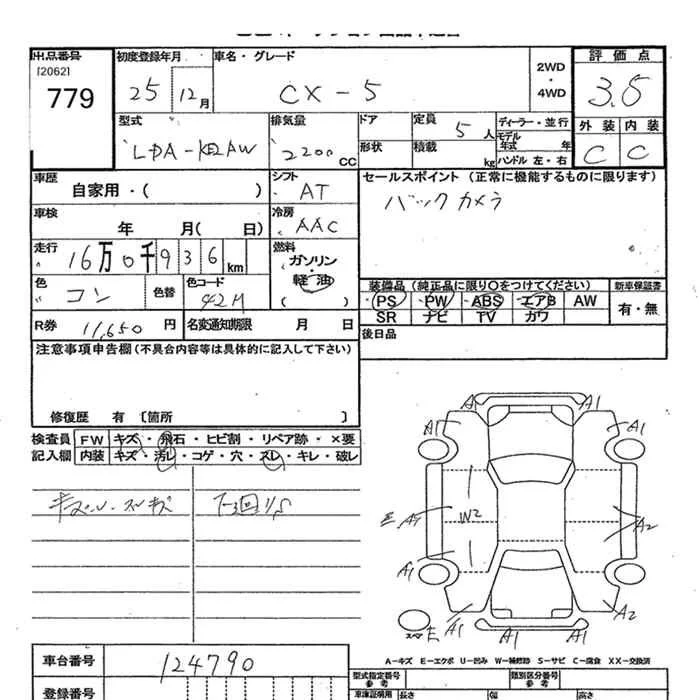 出品番号
[2062]
779
初度登録年月
25 12月
車名・グレード
CX-5
2WD
・
4WD
評価点
3.5
型式
LDA-KE2AW
排気量
2200 CC
ドア
形状
定員
5人
積載
kg
ディーラー・並行
モデル
年式 年
ハンドル 左・右
外装 内装
C C
車歴
自家用・( )
シフト
AT
セールスポイント (正常に機能するものに限ります)
バックカメラ
車検
年 月( 日)
冷房
AAC
走行
16万0千936km
燃料
ガソリン
・
軽油
( )
色
コン
色替
色コード
42M
装備品 (純正品に限り〇をつけてください)
新車保証書
PS PW ABS エアB AW
SR ナビ TV カワ
有・無
R券 11,650 円
名変通知期限 月 日
後日品
注意事項申告欄 (不具合内容等は具体的に記入して下さい)
修復歴 有 [箇所 ]
検査員
記入欄
FW キズ・飛石・ヒビ割・リペア跡・×要
内装 キズ・汚レ・コゲ・穴・スレ・キレ・破レ
A1 A1
A1 A1
W2
E A1 A2
A1
A1 A1 A1 A2
スペア E
A-キズ E-エクボ U-凹み W-補修跡 S-サビ C-腐食 XX-交換済
車台番号
124790
登録番号
型式指定番号
参考
類別区分番号
参考
車庫証明用 長さ 幅 高さ